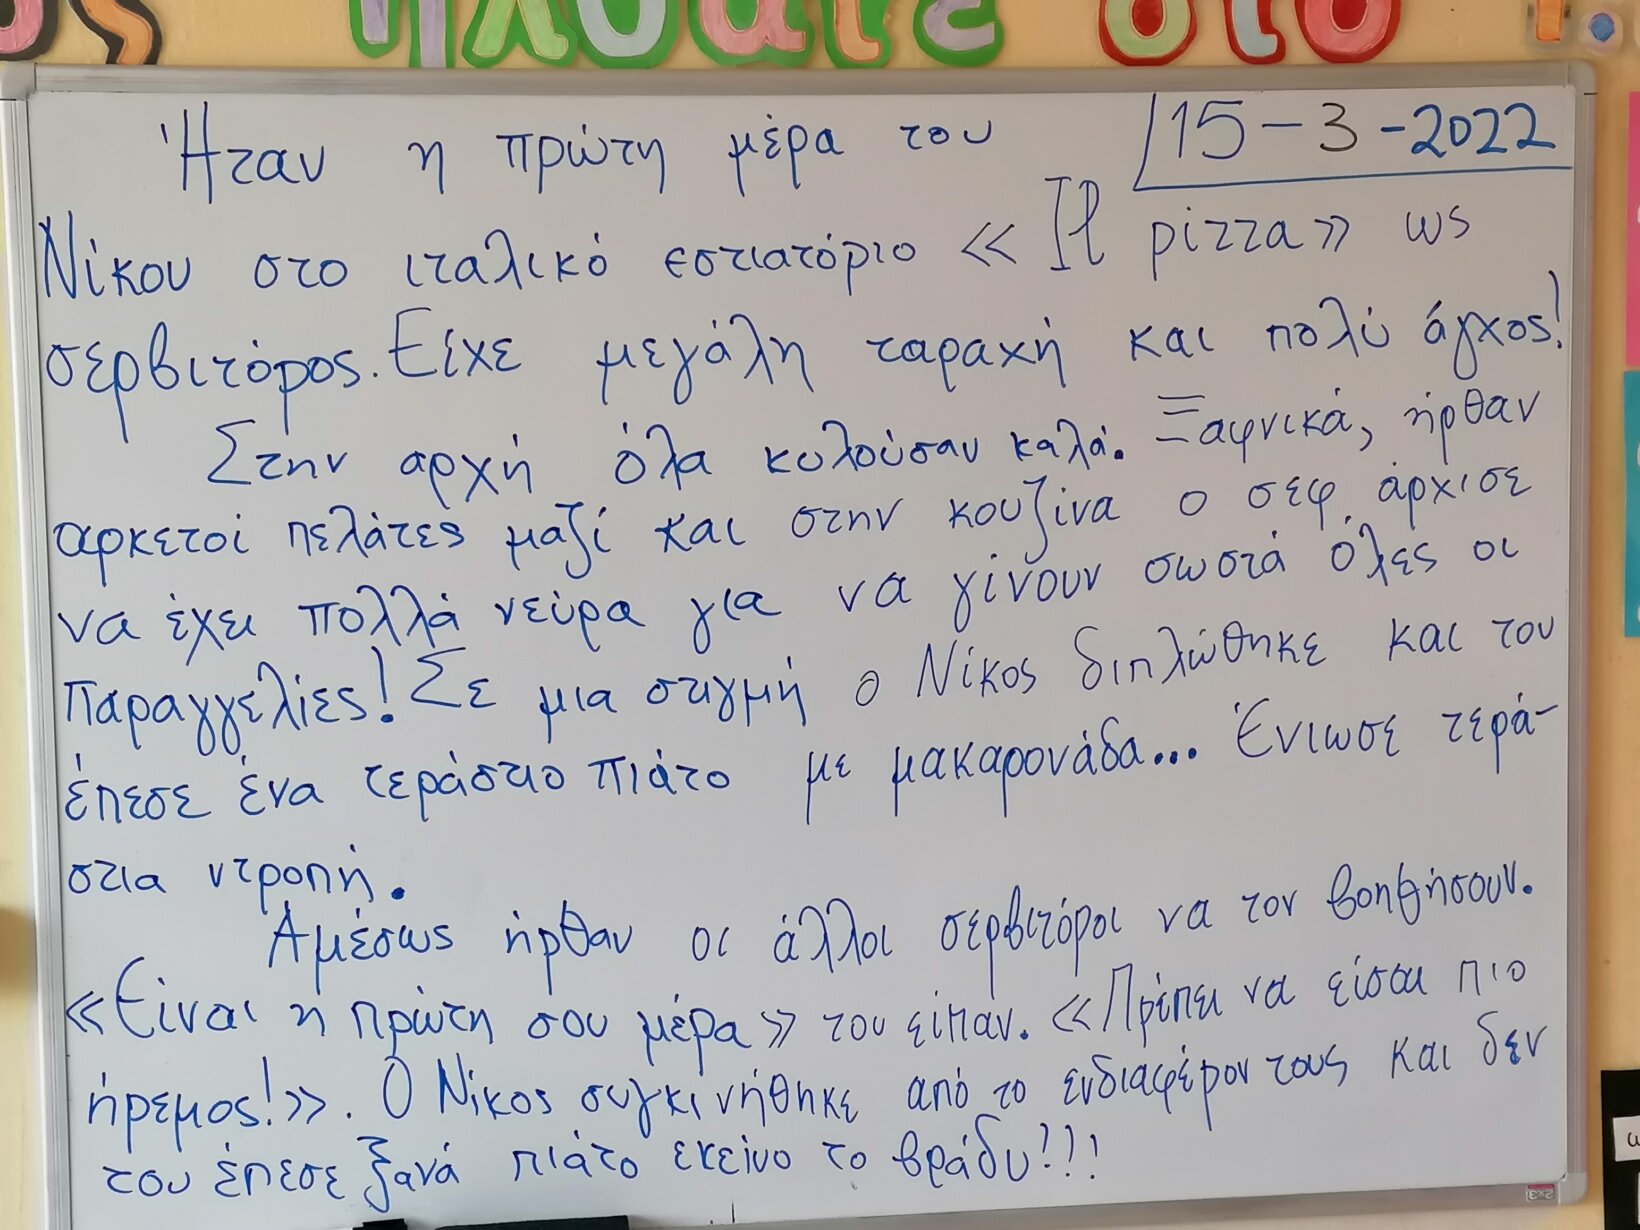 ς ήλθατε στο
15-3-2022
Ήταν η πρώτη μέρα του
Νίκου στο ιταλικό εστιατόριο «Il pizza» ως
σερβιτόρος. Είχε μεγάλη ταραχή και πολύ άγχος!
Στην αρχή όλα κυλούσαν καλά. Ξαφνικά, ήρθαν
αρκετοί πελάτες μαζί και στην κουζίνα ο σεφ άρχισε
να έχει πολλά νεύρα για να γίνουν σωστά όλες οι
παραγγελίες! Σε μια στιγμή ο Νίκος διπλώθηκε και του
έπεσε ένα τεράστιο πιάτο με μακαρονάδα... Ένιωσε τερά-
στια ντροπή.
Αμέσως ήρθαν οι άλλοι σερβιτόροι να τον βοηθήσουν.
«Είναι η πρώτη σου μέρα» του είπαν. «Πρέπει να είσαι πιο
ήρεμος!». Ο Νίκος συγκινήθηκε από το ενδιαφέρον τους και δεν
του έπεσε ξανά πιάτο εκείνο το βράδυ!!!
2x3